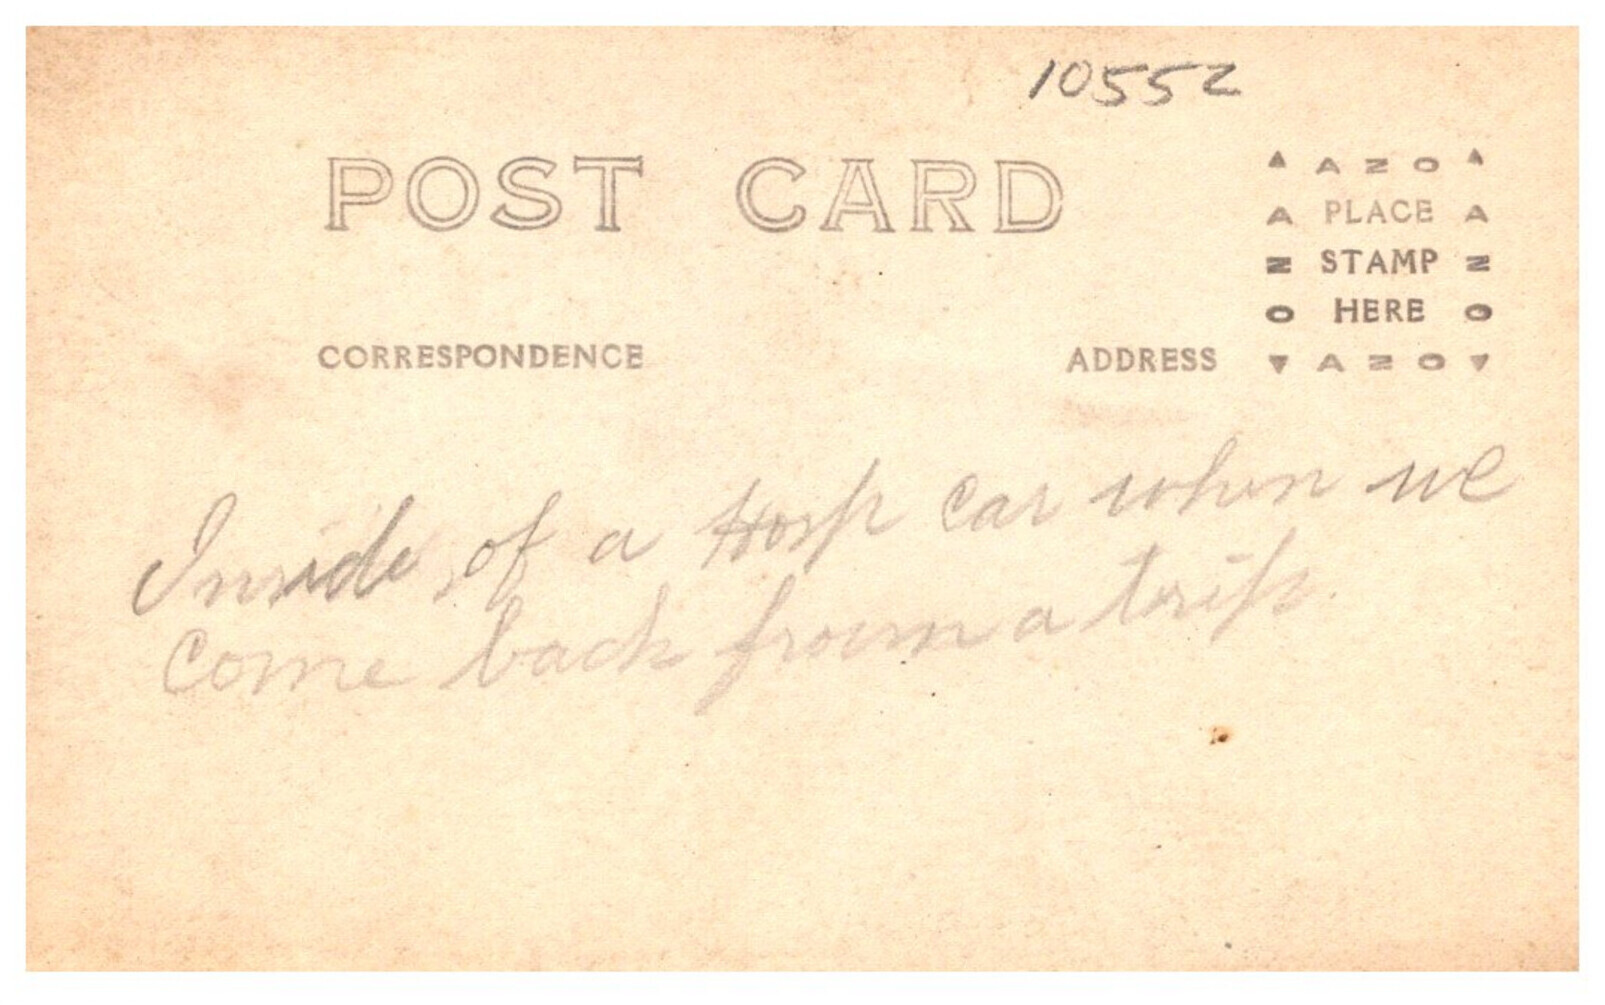 10552
POST CARD
▲ AZO ▲
A PLACE A
Z STAMP Z
O HERE O
▼ AZO ▼
CORRESPONDENCE
ADDRESS
Inside of a Hosp car when we
come back from a trip.